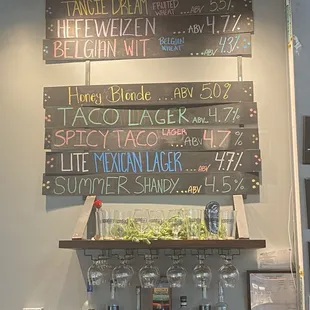 TANGIE DREAM FRUITED WHEAT ...ABV 5.5%
HEFEWEIZEN ... ABV 4.7%
BELGIAN WIT BELGIAN WHEAT ...ABV 4.3%
Honey Blonde ... ABV 5.0%
TACO LAGER ... ABV 4.7%
SPICY TACO LAGER ...ABV 4.7%
LITE MEXICAN LAGER ... ABV 4.7%
SUMMER SHANDY... ABV 4.5%